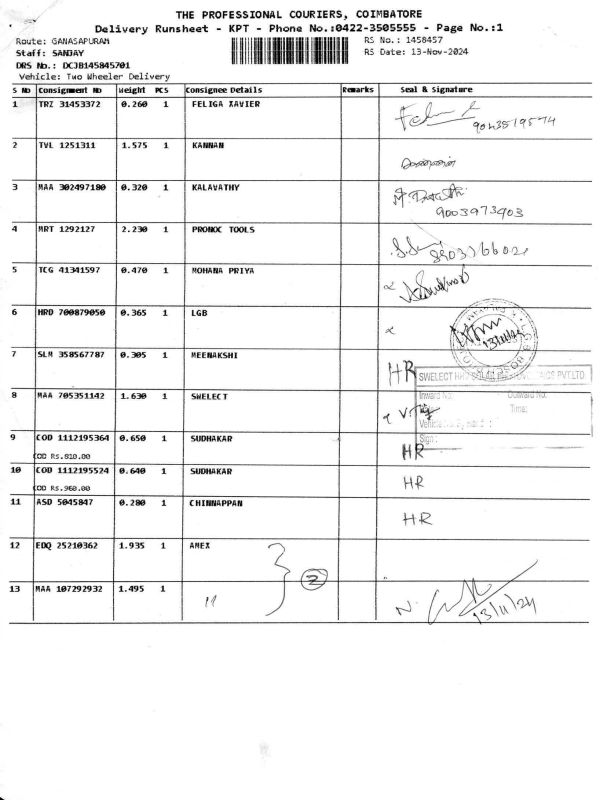 THE PROFESSIONAL COURIERS, COIMBATORE
Delivery Runsheet - KPT - Phone No.:0422-3505555 - Page No.:1
Route: GANASAPURAM
RS No.: 1458457
Staff: SANJAY
RS Date: 13-Nov-2024
DRS No.: DCJB145845701
Vehicle: Two Wheeler Delivery
S No Consignment No Weight PCS Consignee Details Remarks Seal & Signature
1 TRZ 31453372 0.260 1 FELIGA XAVIER
9043519574
2 TVL 1251311 1.575 1 KANNAN
3 MAA 302497180 0.320 1 KALAVATHY
9003973403
4 MRT 1292127 2.230 1 PRONOC TOOLS
5 TCG 41341597 0.470 1 MOHANA PRIYA
6 HRD 700879050 0.365 1 LGB
13/11/24
7 SLM 358567787 0.305 1 MEENAKSHI HR
SWELECT PVT.LTD
8 MAA 705351142 1.630 1 SWELECT
Inward No: Outward No:
Time:
Sign:
9 COD 1112195364 0.650 1 SUDHAKAR HR
COD Rs.810.00
10 COD 1112195524 0.640 1 SUDHAKAR HR
COD Rs.960.00
11 ASD 5045847 0.280 1 CHINNAPPAN HR
12 EDQ 25210362 1.935 1 AMEX
2
13 MAA 107292932 1.495 1 "
13/11/24